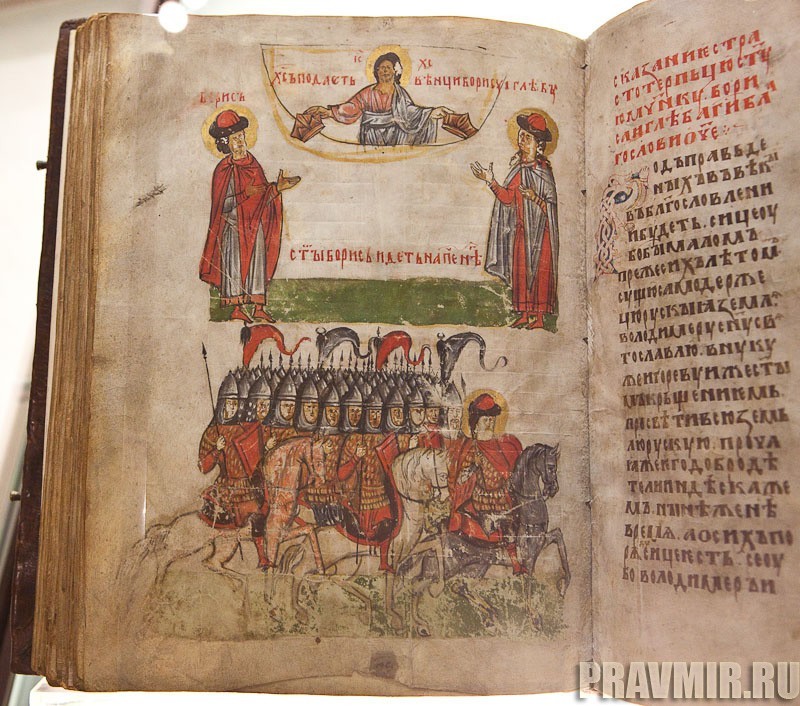 ІС ХС
ХСЪ ПОДАЕТЬ ВѢНЦИ БОРИСУ И ГЛѢБУ
БОРИСЪ
СТЫ БОРИСЪ ИДЕТЬ НА ПЕЧЕНѢ
СКАЗАНИЕ СТРА
СТОТЕРПЬЦЮ СТУ
Ю МУЧНКУ БОРИ
СА И ГЛѢБА Г И БЛА
ГОСЛОВИ ОЧЕ
РОДЪ ПРАВЬДЕ
НЫХЪ ВЪ ВѢКЫ
ВЪ БЛАГОСЛОВЛЕНИ
И БУДЕТЬ. СИЦЕ ОУ
БО БЫ МАЛОМЪ
ПРЕЖЕ СИХЪ ЛѢТОМЪ
СУЩЮ САМОДЕРЖЕ
ЦЮ РУСКЫІА ЗЕМЛѦ
ВОЛОДИМЕРУ СНУ СВѦ
ТОСЛАВЛЮ. ВЪНУКУ
ЖЕ ИГОРЕВУ ИЖЕ СТЫ
МЬ КРЩЕНИЕМЬ.
ПРОСВѢТИ ВСЮ ЗЕМЛ
Ю РУСКУЮ. ПРОЧАІА
ЖЕ ЕГО ДОБРОДѢ
ТЕЛИ ИНДЕ СКАЖЕ
МЪ. НЫНѢ ЖЕ НѢ
ВРЕМѦ. А О СИХЪ ПО
РѦДУ СИЦЕ ЕСТЬ. СЬ ОУ
БО ВОЛОДИМЕРЪ И
PRAVMIR.RU